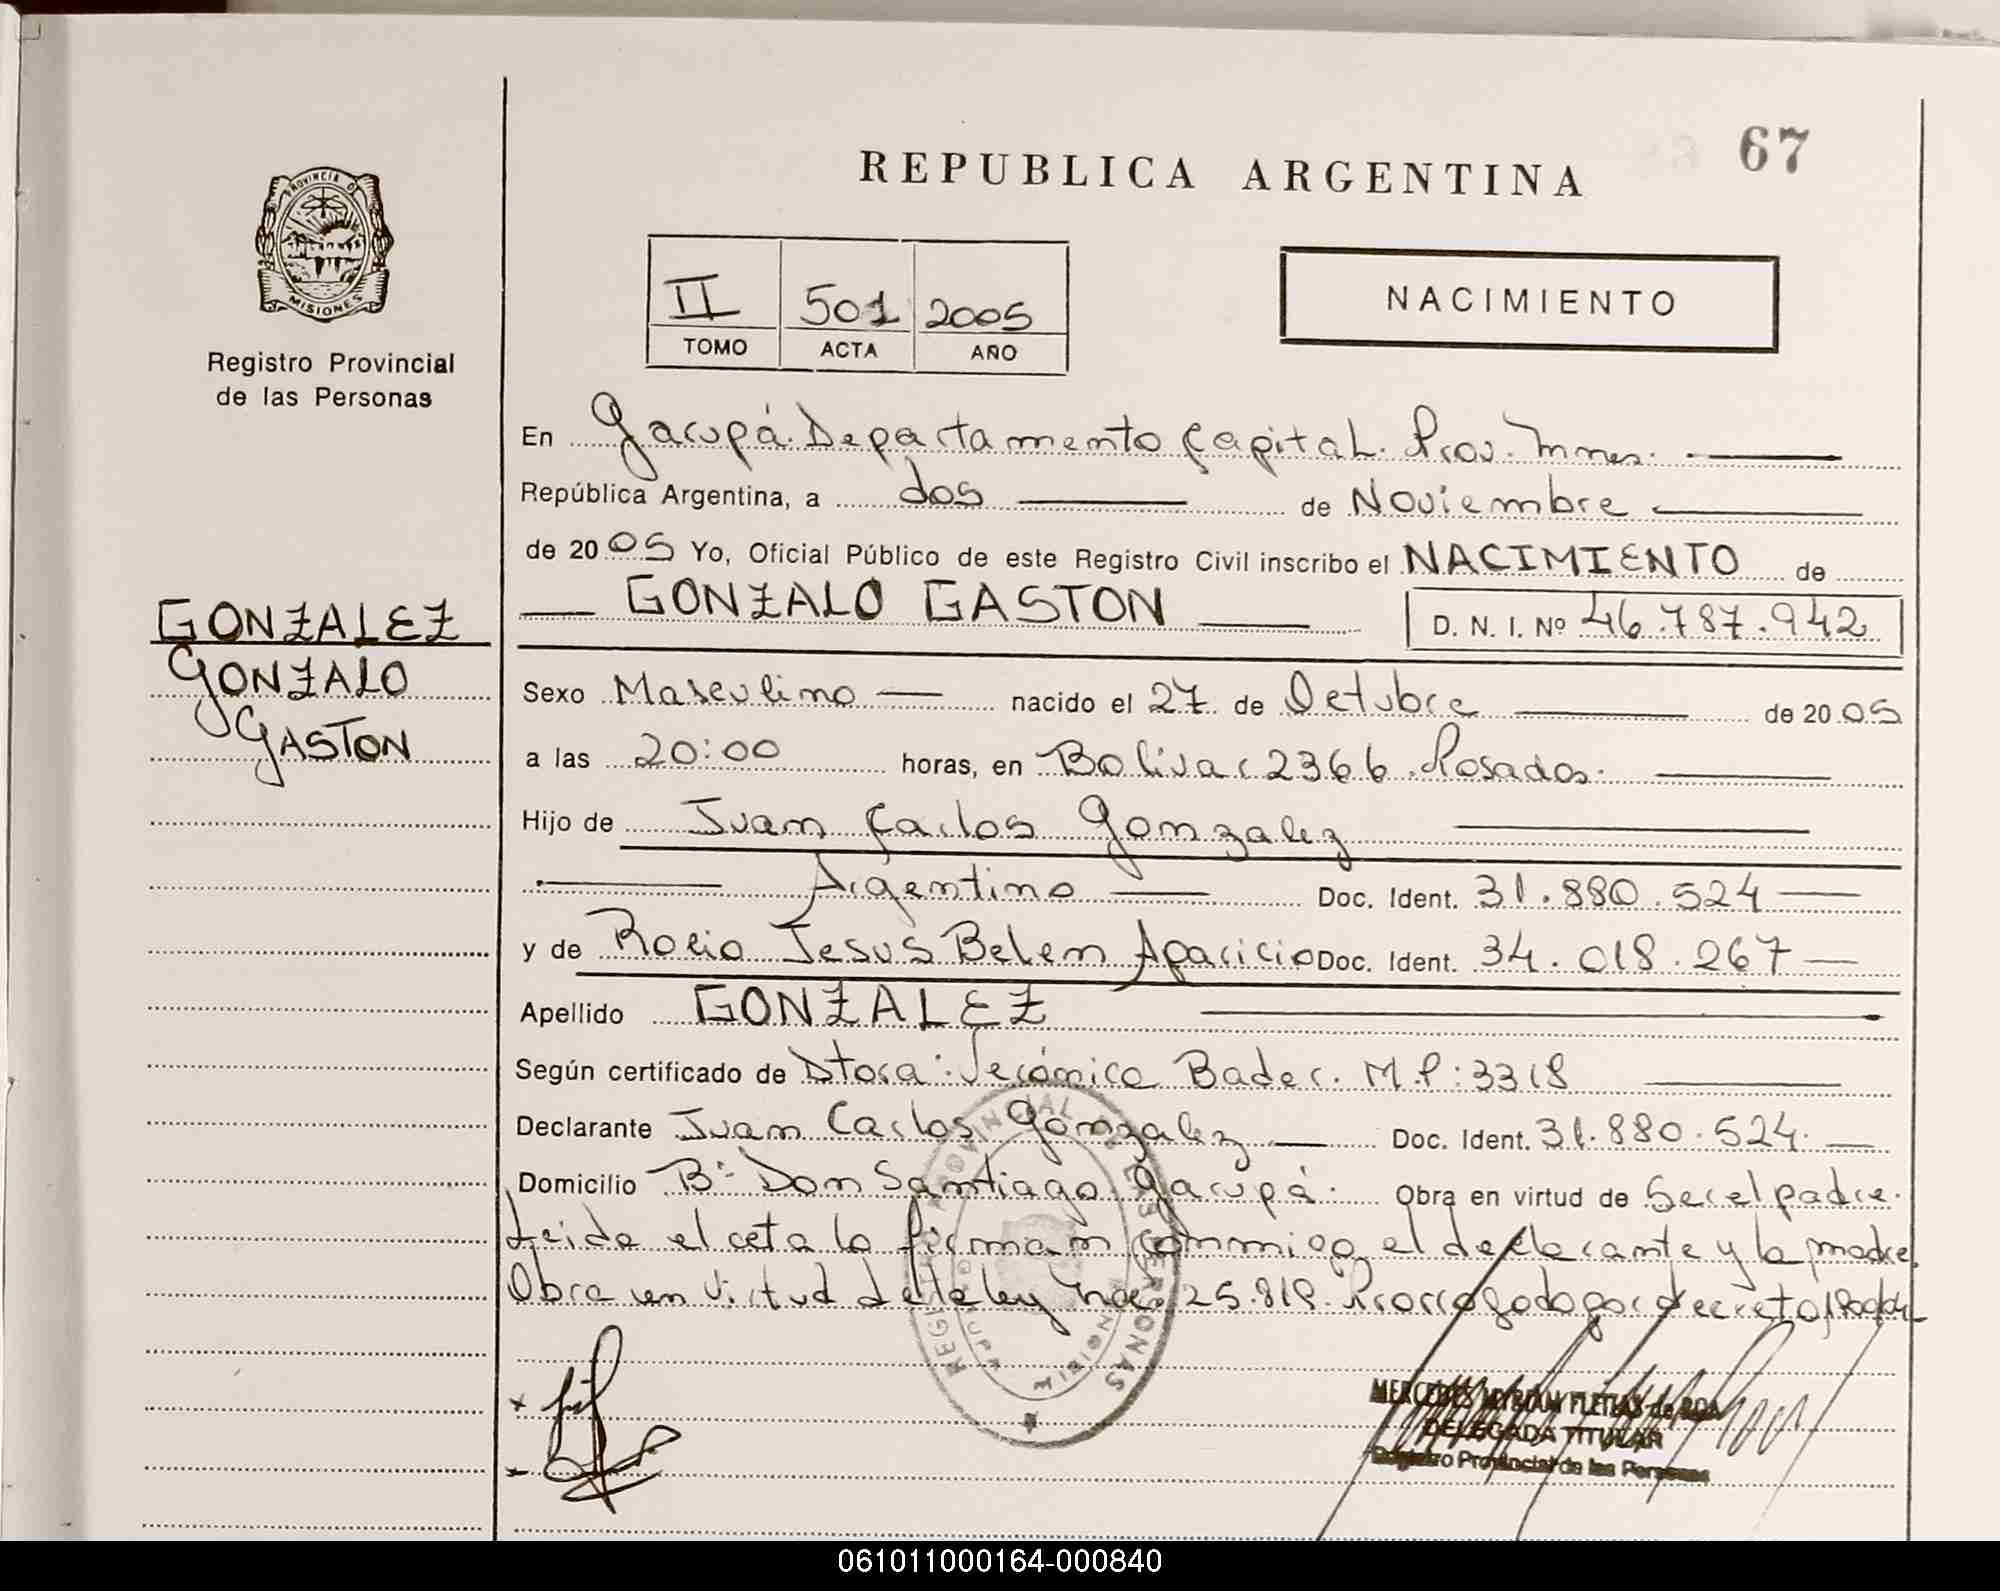 REPUBLICA ARGENTINA
67
PROVINCIA DE
MISIONES
Registro Provincial
de las Personas
II 501 2005
TOMO ACTA AÑO
NACIMIENTO
En Garupá. Departamento Capital. Prov. Mnes.
República Argentina, a dos de Noviembre
de 2005 Yo, Oficial Público de este Registro Civil inscribo el NACIMIENTO de
GONZALO GASTON D. N. I. Nº 46.787.942
GONZALEZ
GONZALO
GASTON
Sexo Masculino nacido el 27 de Octubre de 2005
a las 20:00 horas, en Bolivar 2366. Posadas.
Hijo de Juan Carlos Gonzalez
Argentino Doc. Ident. 31.880.524
y de Rocio Jesus Belen Aparicio Doc. Ident. 34.018.267
Apellido GONZALEZ
Según certificado de Dtora: Verónica Bader. M.P: 3318
Declarante Juan Carlos Gonzalez Doc. Ident. 31.880.524.
Domicilio Bº Don Santiago Garupá. Obra en virtud de Ser el padre.
Leida el acta la firman conmigo el declarante y la madre.
Obra en virtud de la ley nac. 25.819. Prorrogado por decreto
REGISTRO PROVINCIAL DE LAS PERSONAS
MERCEDES MYRIAM FLEITAS de ROA
DELEGADA TITULAR
Registro Provincial de las Personas
061011000164-000840